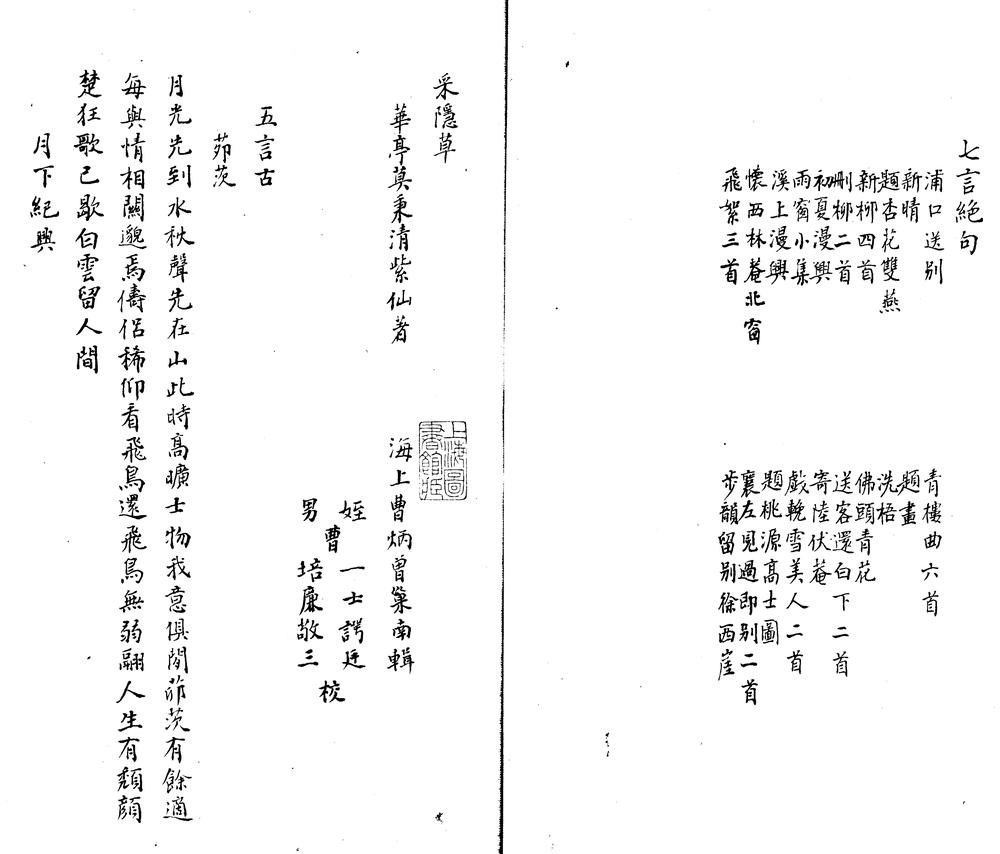 七言絶句
浦口送别
新晴
題杏花雙燕
新柳四首
刪柳二首
初夏漫興
雨窗小集
溪上漫興
懷西林菴北窗
飛絮三首
青樓曲六首
題畫
洗梧
佛頭青花
送客還白下二首
寄陸伏菴
戲輓雪美人二首
題桃源高士圖
襄左見過即别二首
步韻留别徐西崖
采隱草
華亭莫秉清紫仙著
上海圖書館藏
海上曹炳曾巢南輯
姪
曹一士諤廷
男
培廉敬三
校
五言古
茆茨
月光先到水秋聲先在山此時高曠士物我意俱閒茆茨有餘適
每與情相關邈焉儔侣稀仰看飛鳥還飛鳥無弱翮人生有頹顔
楚狂歌已歇白雲留人間
月下紀興